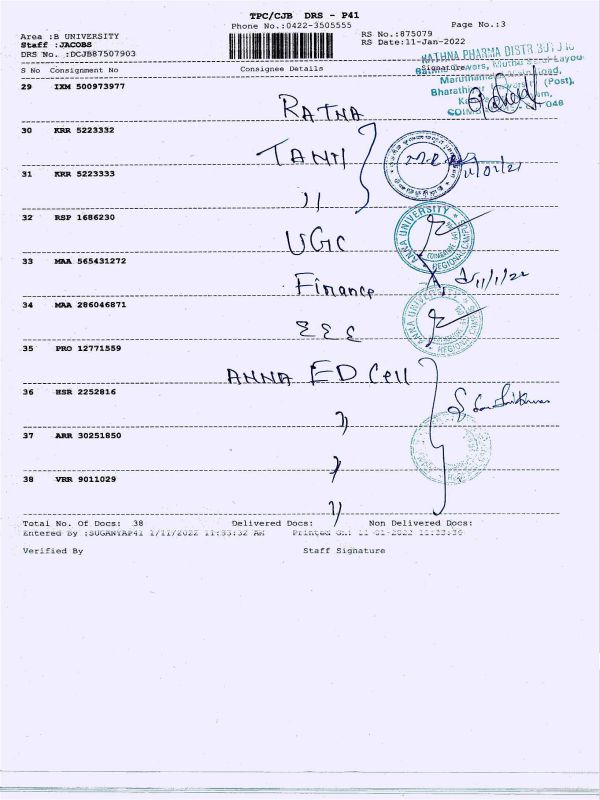 TPC/CJB DRS - P41
Phone No.:0422-3505555
Page No.:3
Area :B UNIVERSITY
RS No.:875079
Staff :JACOBS
RS Date:11-Jan-2022
DRS No. :DCJB87507903
S No Consignment No Consignee Details Signature
RATHNA PHARMA DISTR
29 IXM 500973977
RATNA
30 KRR 5223332
TANII
31 KRR 5223333
11
32 RSP 1686230
UGC
ANNA UNIVERSITY
REGIONAL CAMPUS
COIMBATORE
33 MAA 565431272
Finance
11/1/22
34 MAA 286046871
EEE
ANNA UNIVERSITY
REGIONAL CAMPUS
35 PRO 12771559
ANNA ED Cell
36 HSR 2252816
"
37 ARR 30251850
"
38 VRR 9011029
"
Total No. Of Docs: 38 Delivered Docs: Non Delivered Docs:
Entered By :SUGANYAP41 1/11/2022 11:33:32 AM Printed On: 11-01-2022 11:33:36
Verified By Staff Signature